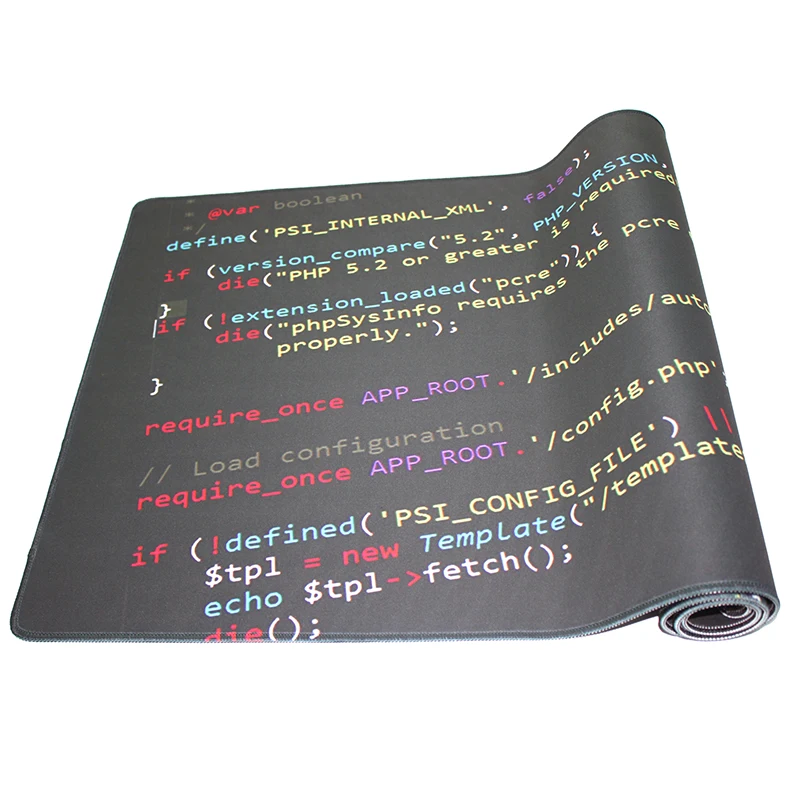 * @var boolean
*/
define('PSI_INTERNAL_XML', false);
if (version_compare("5.2", PHP_VERSION,
die("PHP 5.2 or greater is required
}
if (!extension_loaded("pcre")) {
die("phpSysInfo requires the pcre
properly.");
}
require_once APP_ROOT.'/includes/auto
// Load configuration
require_once APP_ROOT.'/config.php';
if (!defined('PSI_CONFIG_FILE') ||
$tpl = new Template("/template
echo $tpl->fetch();
die();